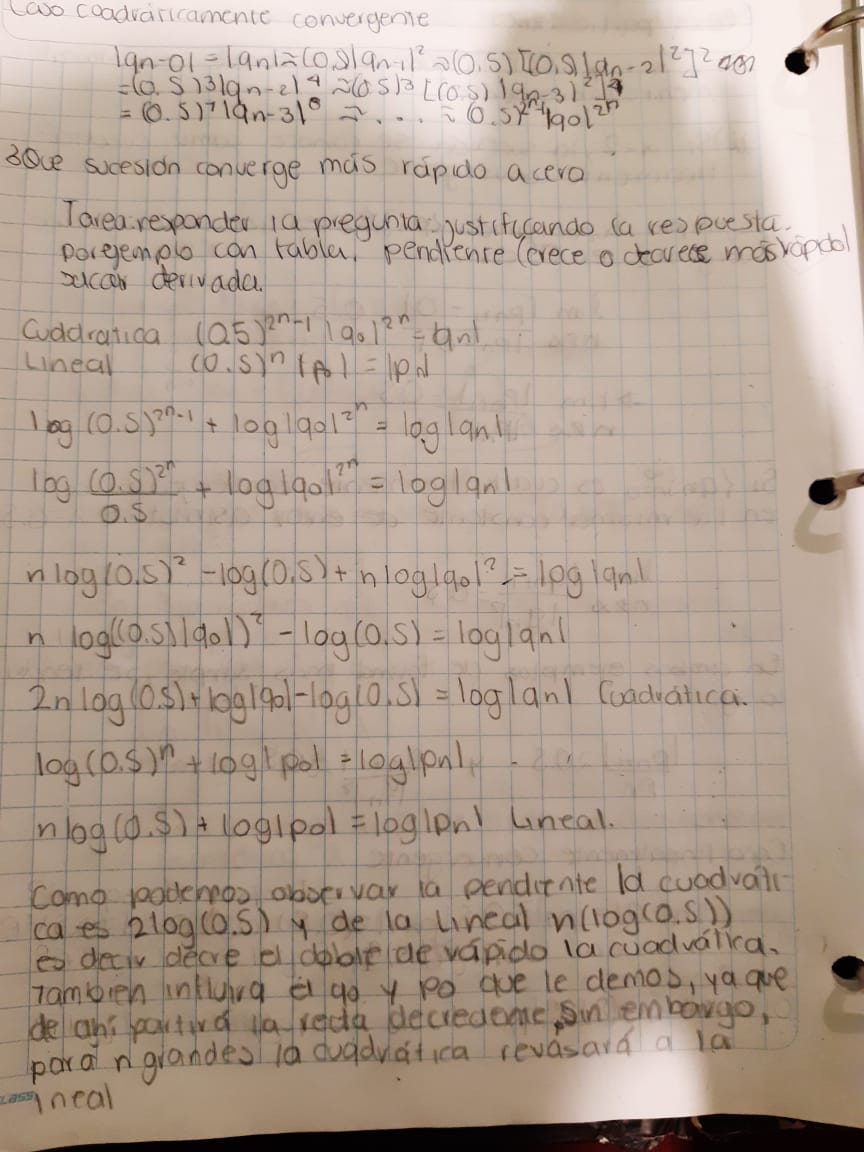 Caso cuadráricamente convergente
|qn-0|=|qn|≈(0.5)|qn-1|² ≈(0.5)[(0.5)|qn-2|²]²
=(0.5)3|qn-2|⁴ ≈(0.5)³ [(0.5)|qn-3|²]⁴
= (0.5)⁷|qn-3|⁸ ≈ . . . ≈ (0.5)²ⁿ⁻¹|qo|²ⁿ
¿Que sucesión converge más rápido a cero
Tarea: responder la pregunta justificando la respuesta.
por ejemplo con tabla, pendiente (crece o decrece más rápido)
sacar derivada.
Cuadratica (0.5)²ⁿ⁻¹ |qo|²ⁿ = qn|
Lineal (0.5)ⁿ |po| = |pn|
log (0.5)²ⁿ⁻¹ + log|qo|²ⁿ = log|qn|
log (0.5)²ⁿ + log|qo|²ⁿ = log|qn|
0.5
n log(0.5)² -log(0.5)+ n log|qo|² = log|qn|
n log((0.5)|qo|)² - log(0.5) = log|qn|
2n log(0.5)+log|qo|-log(0.5) = log|qn| Cuadrática.
log(0.5)ⁿ + log|po| = log|pn|
n log(0.5)+ log|po| = log|pn| Lineal.
Como podemos observar la pendiente la cuadráti-
ca es 2log(0.5) y de la lineal n(log(0.5))
es decir decre el doble de rápido la cuadrática.
Tambien influira el qo y po que le demos, ya que
de ahí partirá la recta decredeme, sin embargo,
para n grandes la cuadrática revasará a la
lineal
CLASS